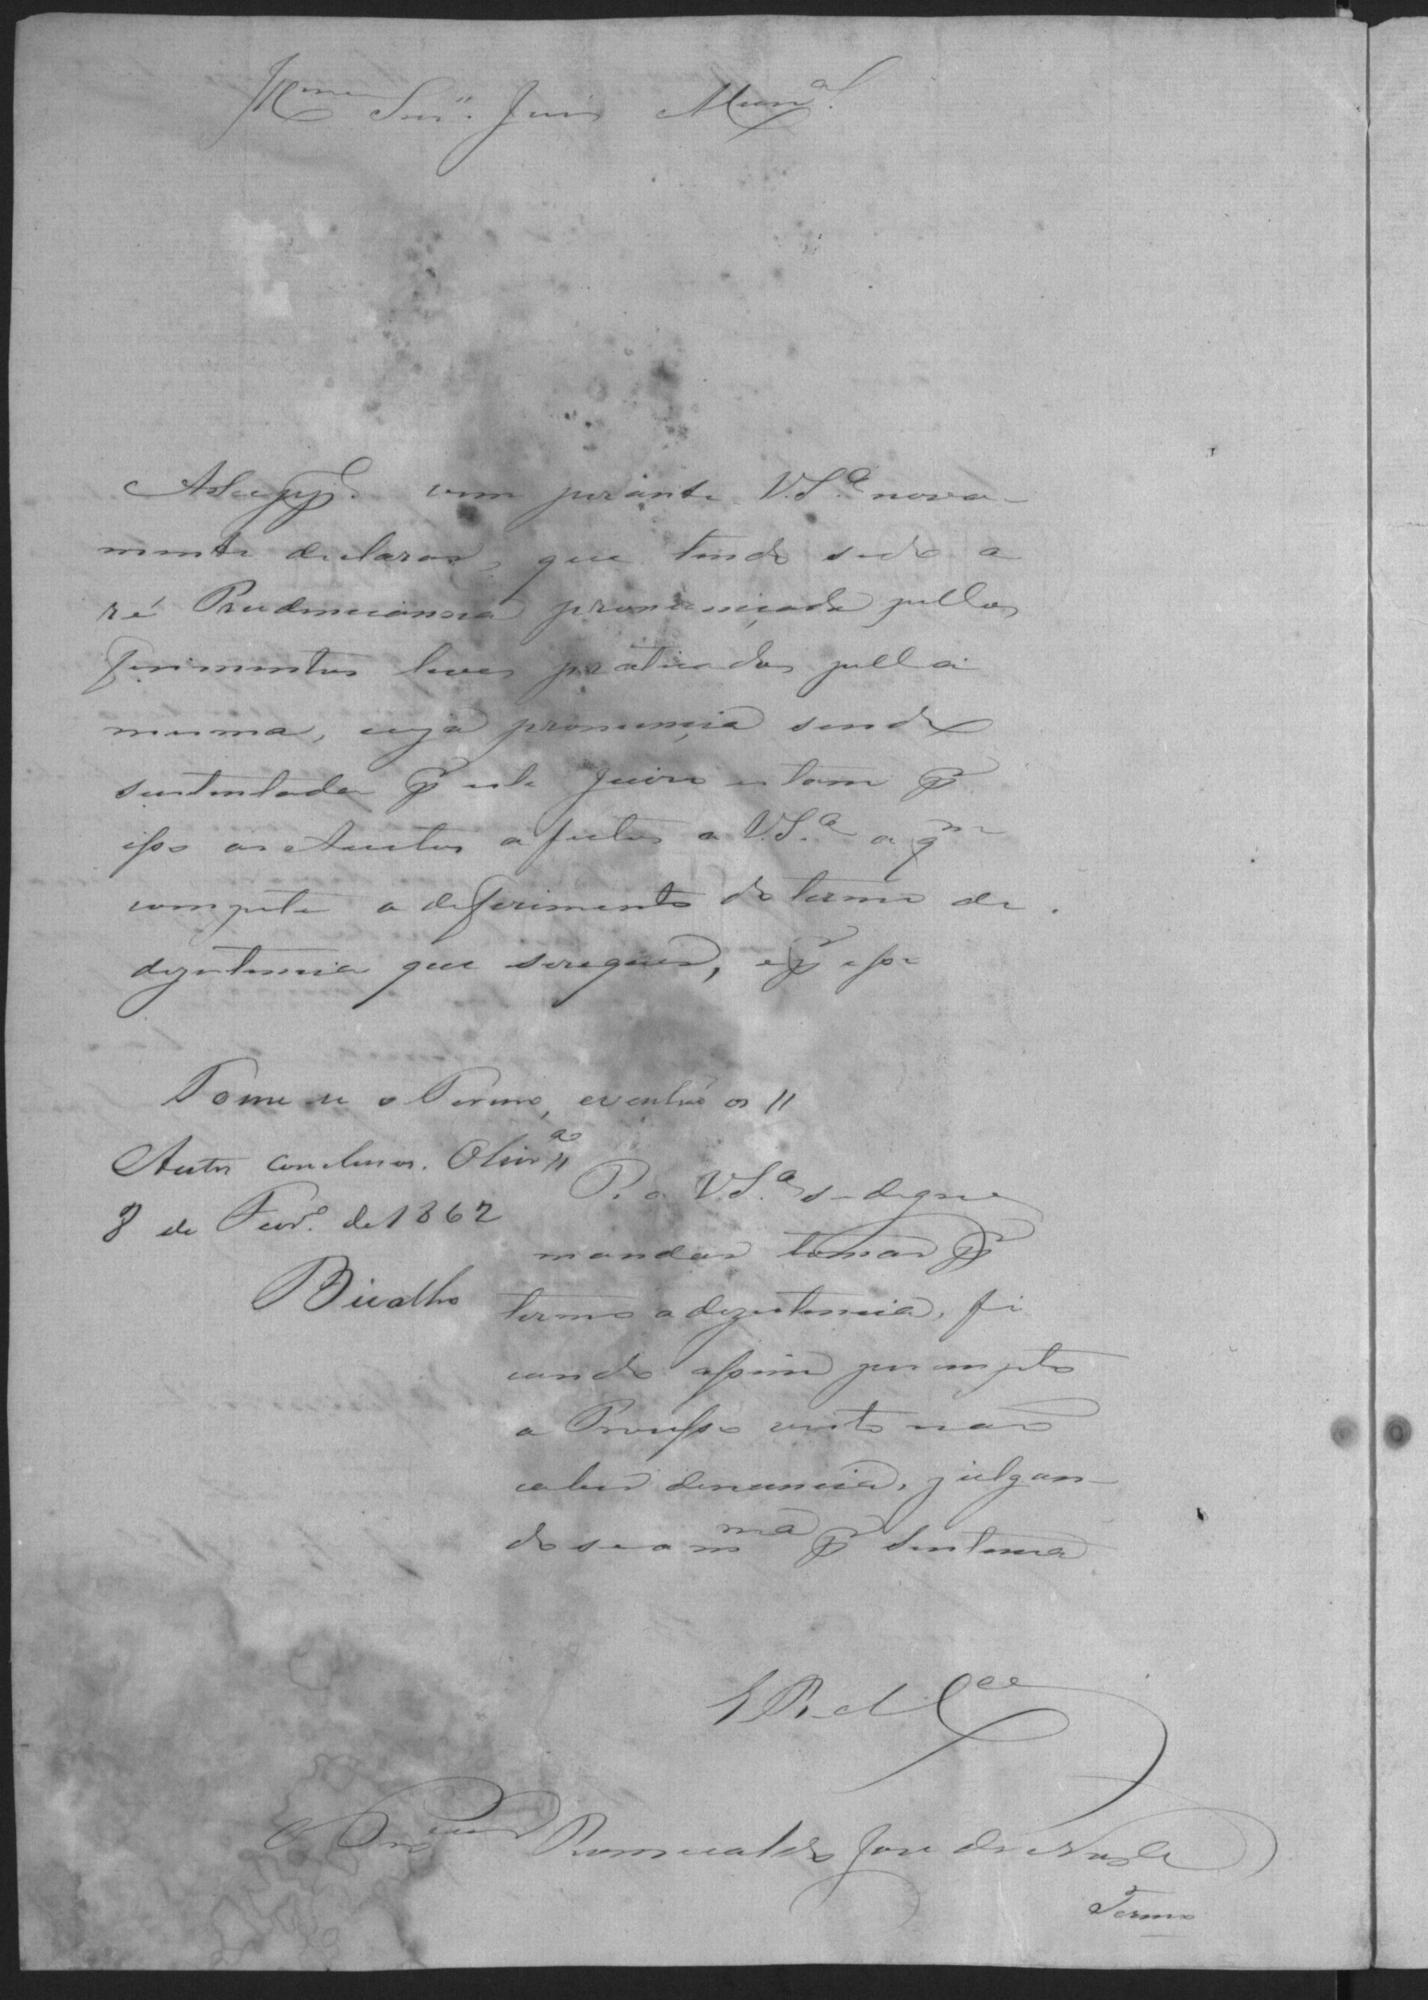 Illmo Snr. Juis Munal.
A Supp.e vem perante V.S.a nova-
mente declarar, que tendo sido a
ré Prudenciana pronunciada pellos
ferimentos leves praticados pella
mesma, cuja pronuncia sendo
sustentada p este Juizo estam p
isso os Autos afectos a V.S.a a qm
compete o deferimento do termo de
dezistencia que se requer, e p isso
Tome se o Termo, e venhão os
Autos conclusos. Olivra
8 de Fevro. de 1862
Bicalho
P. a V.S.a se digne
mandar tomar p
termo a dezistencia, fi
cando assim perempto
o Processo visto não
caber denuncia, julgan-
do se a mma p Sentença
E R Mce
O Procurador Romualdo José de
Termo